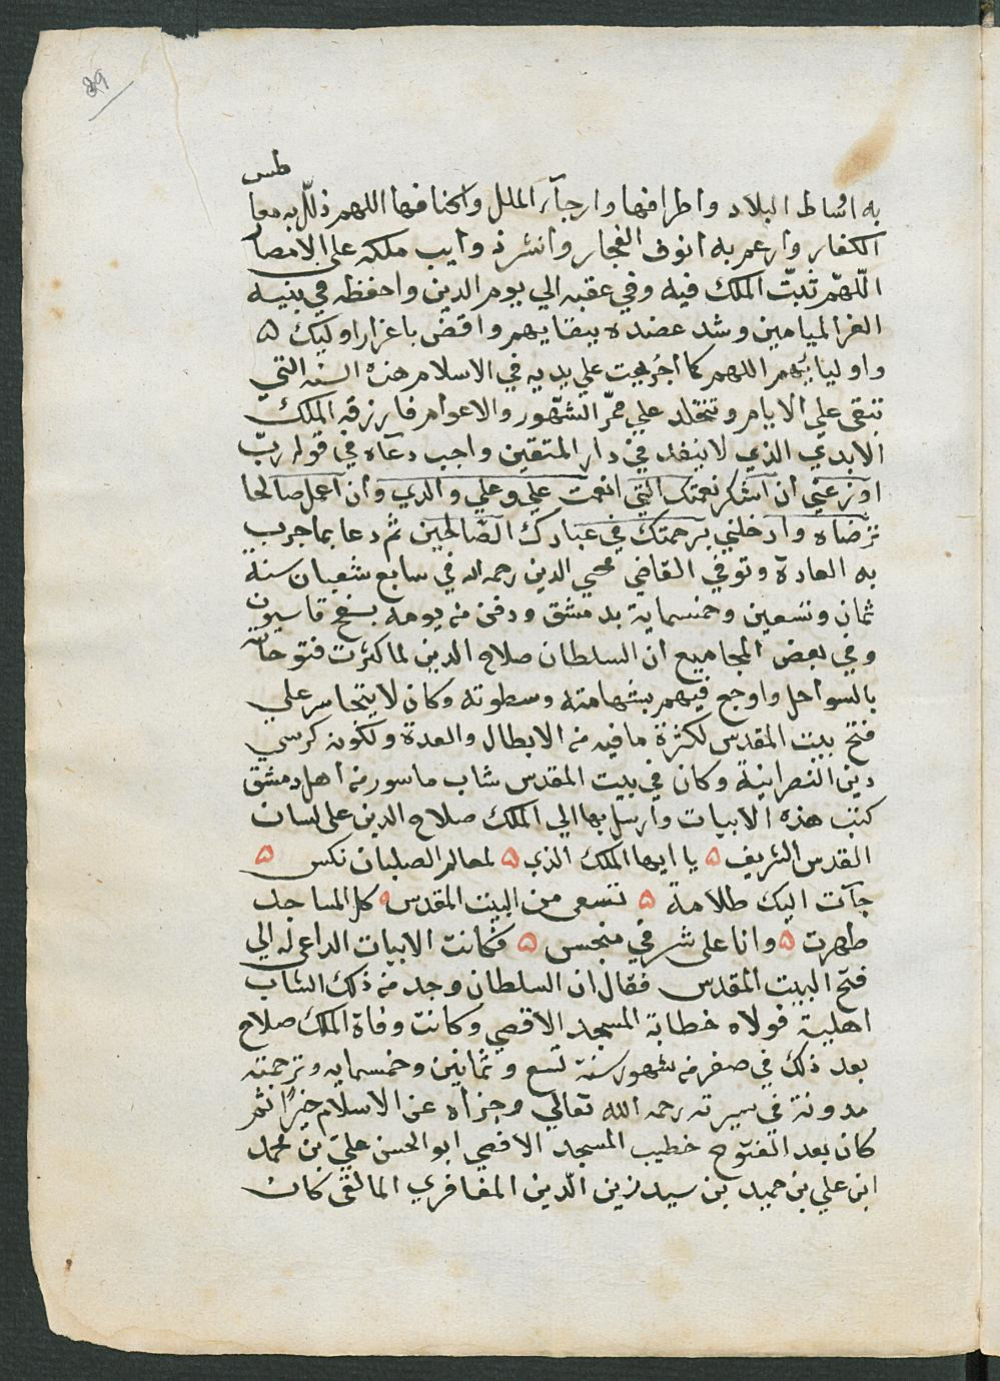 89
طس
به اوساط البلاد واطرافها وارجآء الملل واكنافها اللهم ذلّل به معا
الكفار وارعم به انوف الفجار وانشر ذوايب ملكه على الامصا
اللّهمّ ثبّت الملك فيه وفي عقبه الي يوم الدين واحفظه في بنيه
الغر الميامين وشد عضده ببقايهم واقض باعزاز اوليك ٥
واوليايهم اللهم كما اجريت علي يديه في الاسلام هذه السنه التي
تبقى علي الايام وتتخلد علي ممرّ الشّهور والاعوام فارزقه الملك
الابدي الذي لا ينفد في دار المتقين واجب دعآه في قوله ربّ
اوزعني ان اشكر نعمتك التي انعمت علي وعلي والدي وان اعمل صالحا
ترضاه وادخلني برحمتك في عبادك الصّالحين ثم دعا بما جرت
به العادة وتوفي القاضي محيي الدين رحمه الله في سابع شعبان سنة
ثمان وتسعين وخمسماية بدمشق ودفن من يومه بسفح قاسيون
وفي بعض المجاميع ان السلطان صلاح الدين لما كثرت فتوحاته
بالسواحل واوجع فيهم بشهامته وسطوته وكان لا يتجاسر علي
فتح بيت المقدس لكثرة ما فيه من الابطال والعدة ولكونه كرسي
دين النصرانية وكان في بيت المقدس شاب ماسور من اهل دمشق
كتب هذه الابيات وارسل بها الي الملك صلاح الدين على لسان
القدس الشريف ٥ يا ايها الملك الذي ٥ لمعالم الصلبان نكس ٥
جآت اليك ظلامة ٥ تسعى من البيت المقدس ٥ كل المساجد
طهرت ٥ وانا على شرفي منجس ٥ فكانت الابيات الداعي له الي
فتح البيت المقدس فقال ان السلطان وجد من ذلك الشاب
اهلية فولاه خطابة المسجد الاقصي وكانت وفاة الملك صلاح
بعد ذلك في صفر من شهور سنة تسع وثمانين وخمسمايه وترجمته
مدونة في سيرته رحمه الله تعالي وجزاه عن الاسلام خيرًا ثم
كان بعد الفتوح خطيب المسجد الاقصي ابو الحسن علي بن محمد
ابن علي بن حميد بن سيد زين الّدين المغافري المالقي كان